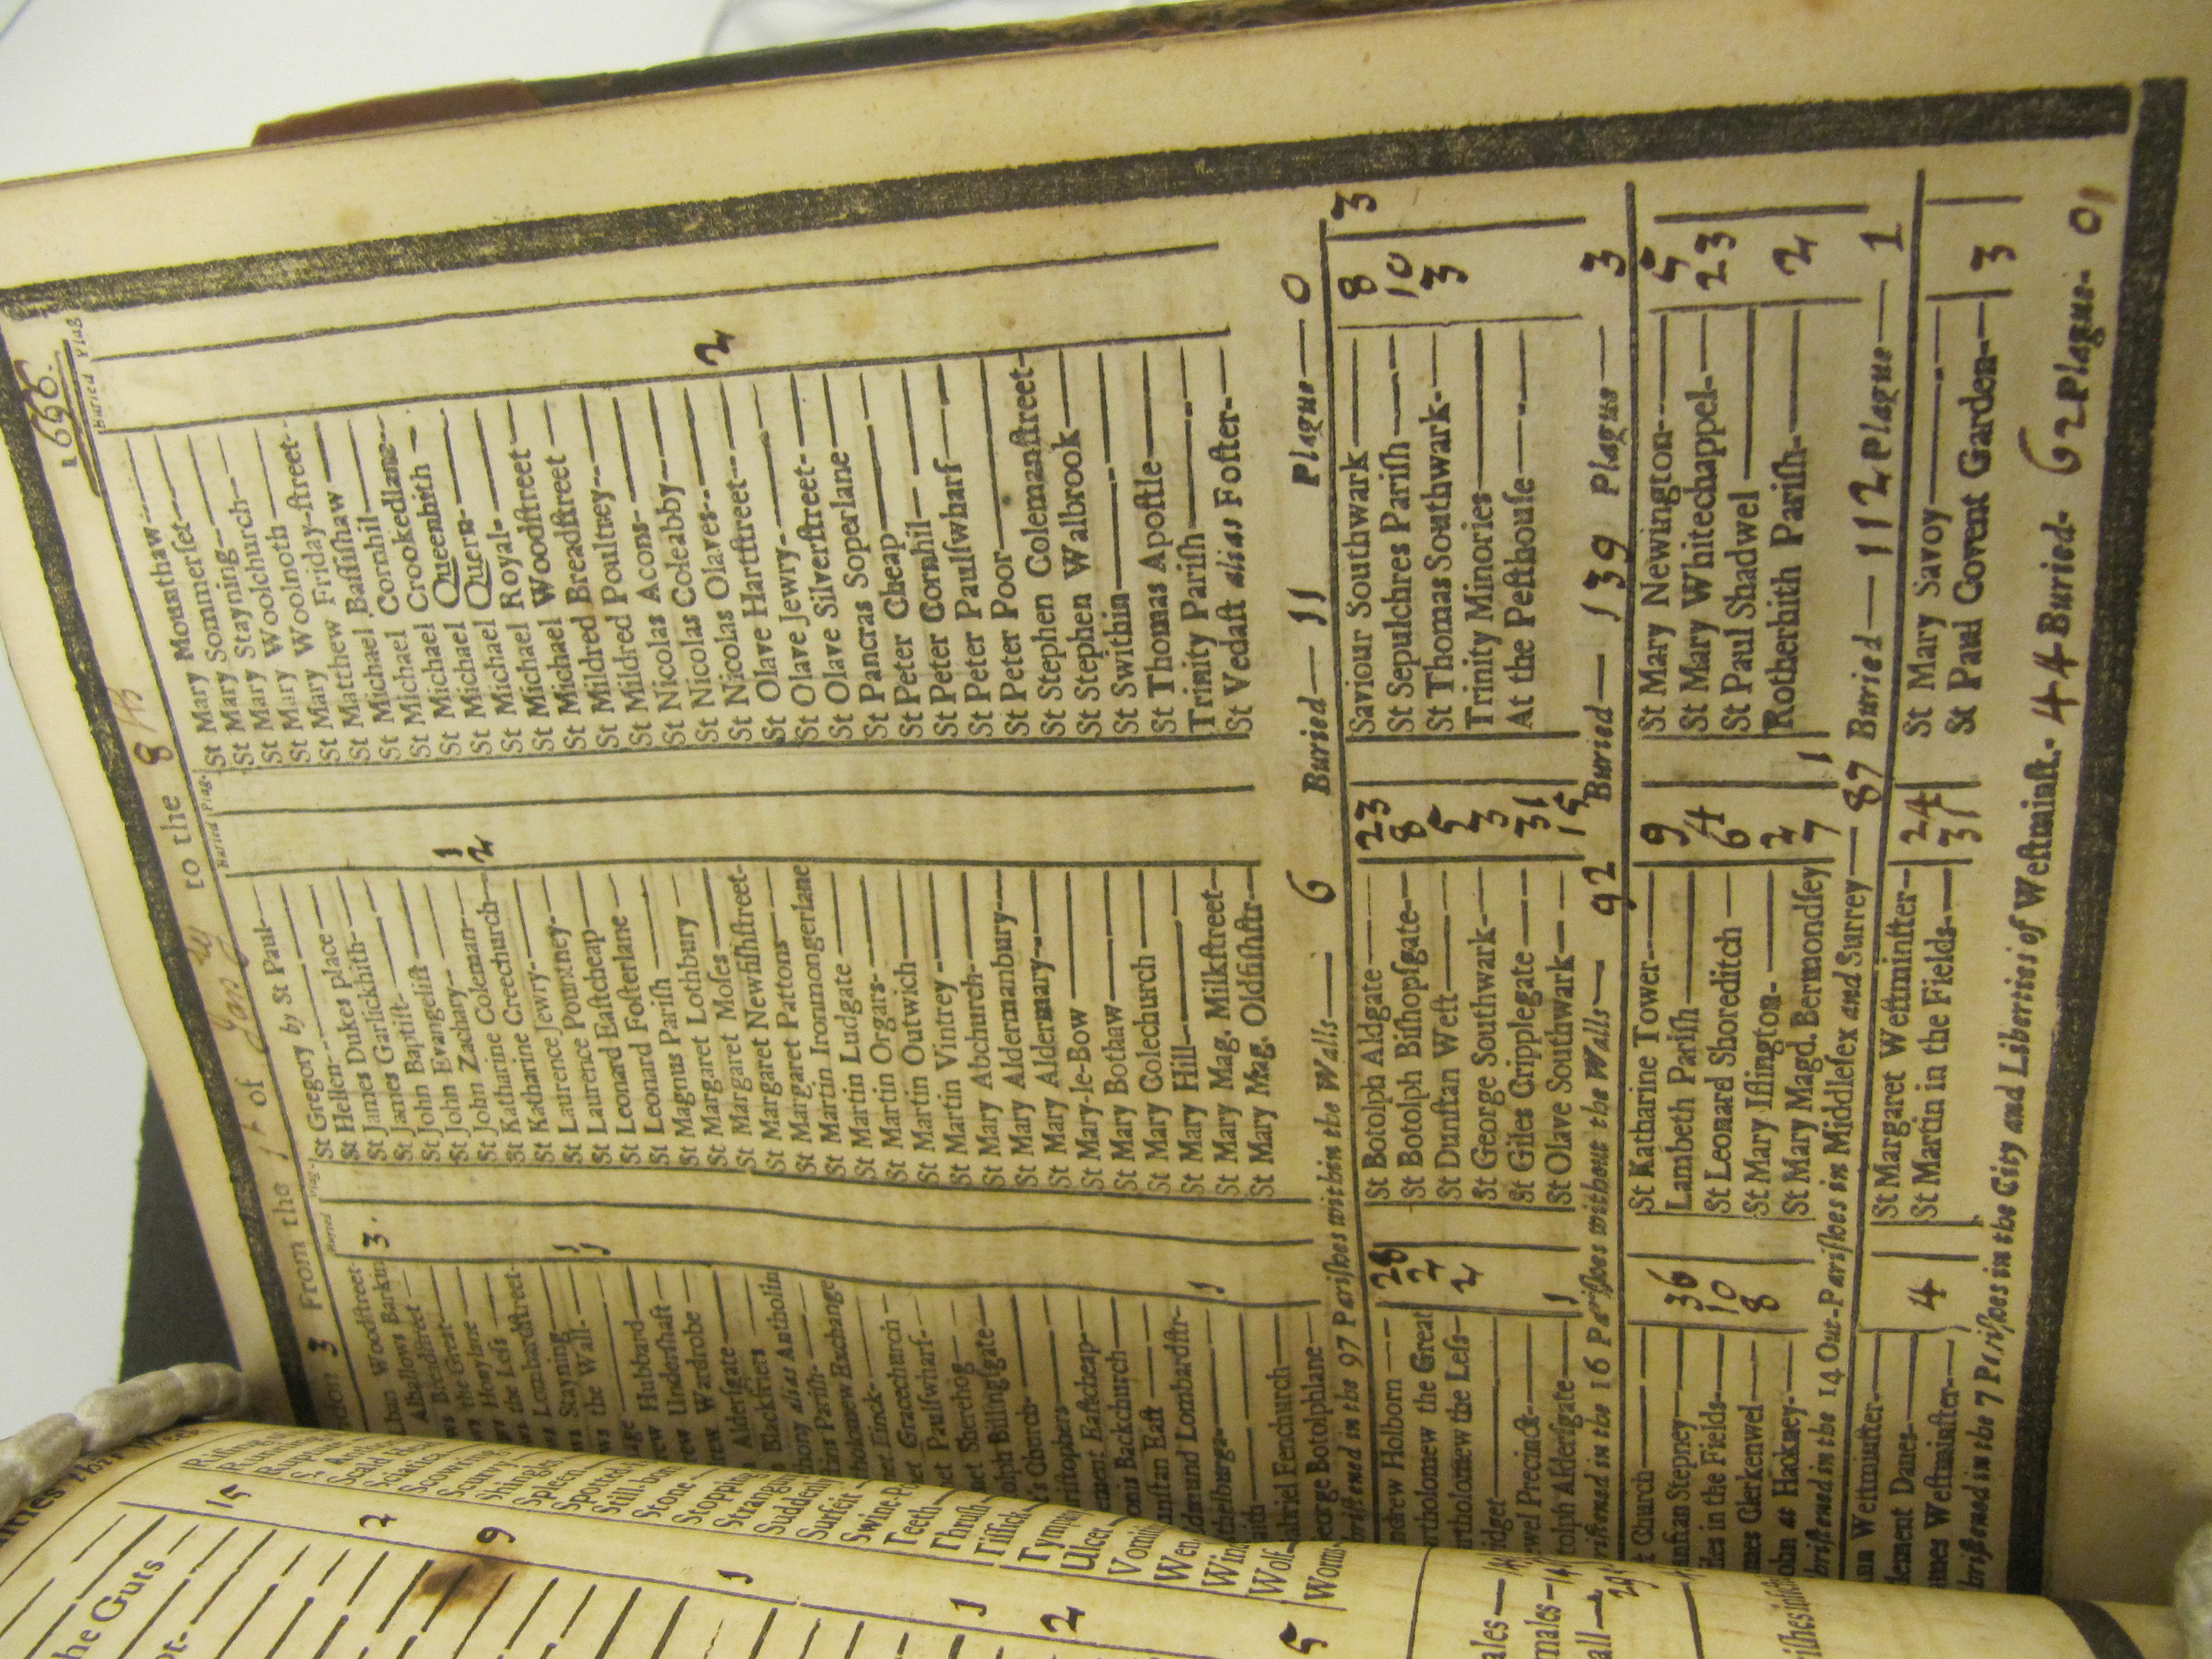 1666.
3 From the 1 of Janry to the 8th
Buried Plag.
Buried Plag
Woodstreet
llows Barkin 3.
Allhallows Breadstreet
the Great
Honylane
the Less
Lombardstreet
Stayning 1
the Wall 1
Hubbard
Undershaft
Wardrobe
Aldersgate
Blackfriers
alias Antholin
Parish
Exchange
Finck
Gracechurch
Paulswharf
Sherehog
Billingsgate
Church
Eastcheap
Backchurch
East
dmund Lombardstr
thelburga 1
abriel Fenchurch
eorge Botolphlane
St Gregory by St Paul
St Hellen
St James Dukes place
St James Garlickhith
St John Baptist
St John Evangelist
St John Zachary
St John Coleman 1
St Katharine Creechurch 2
St Katharine Jewry
St Laurence Pountney
St Laurence Eastcheap
St Leonard Fosterlane
St Leonard Parish
St Magnus Parish
St Margaret Lothbury
St Margaret Moses
St Margaret Newfishstreet
St Margaret Pattons
St Martin Ironmongerlane
St Martin Ludgate
St Martin Orgars
St Martin Outwich
St Martin Vintrey
St Mary Abchurch
St Mary Aldermanbury
St Mary Aldermary
St Mary-le-Bow
St Mary Bothaw
St Mary Colechurch
St Mary Hill
St Mary Mag. Milkstreet
St Mary Mag. Oldfishstr
St Mary Mounthaw
St Mary Sommerset
St Mary Stayning
St Mary Woolchurch
St Mary Woolnoth
St Mary Friday-street
St Matthew Friday
St Michael Bassishaw
St Michael Cornhil
St Michael Crookedlane
St Michael Queenhith
St Michael Quern
St Michael Royal
St Michael Woodstreet
St Mildred Breadstreet
St Mildred Poultney
St Nicolas Acons
St Nicolas Coleabby
St Nicolas Olaves 2
St Olave Hartstreet
St Olave Jewry
St Olave Silverstreet
St Pancras Soperlane
St Peter Cheap
St Peter Cornhil
St Peter Paulswharf
St Peter Poor
St Stephen Colemanstreet
St Stephen Walbrook
St Swithin
St Thomas Apostle
Trinity Parish
St Vedast alias Foster
bristened in the 97 Parishes within the Walls 6 Buried 11 Plague 0
ndrew Holborn 28
artholomew the Great 2
artholomew the Less 2
idget
ewel Precinct
tolph Aldersgate 1
St Botolph Aldgate 23
St Botolph Bishopsgate 8
St Dunstan West 5
St George Southwark 3
St Giles Cripplegate 31
St Olave Southwark 15
Saviour Southwark 8 3
St Sepulchres Parish 10
St Thomas Southwark 3
Trinity Minories
At the Pesthouse
bristened in the 16 Parishes without the Walls 92 Buried 139 Plague 3
t Church
unstan Stepney 36
iles in the Fields 10
mes Clerkenwel 8
ohn at Hackney
St Katharine Tower 9
Lambeth Parish 4
St Leonard Shoreditch 6
St Mary Islington 2
St Mary Magd. Bermondsey 7 1
St Mary Newington 5
St Mary Whitechappel 23
St Paul Shadwel
Rotherhith Parish 2
bristened in the 14 Out-Parishes in Middlesex and Surrey 87 Buried 112 Plague 1
nn Westminster
lement Danes 4
ames Westminster
St Margaret Westminster 24
St Martin in the Fields 31
St Mary Savoy
St Paul Covent Garden 3
bristened in the 7 Parishes in the City and Liberties of Westminst. 44 Buried 62 Plague 01
he Guts 15
2
9
1
1
2
5
Rising
Rupture
Scald
Sciatica
Scowring
Scurvy
Shingles
Spleen
Spotted
Still-born
Stone
Stopping
Strangury
Sudden
Surfeit
Swine-Po
Teeth
Thrush
Tissick
Tympany
Ulcer
Vomiting
Wen
Wind
Wolf
Worms
ales
males
all